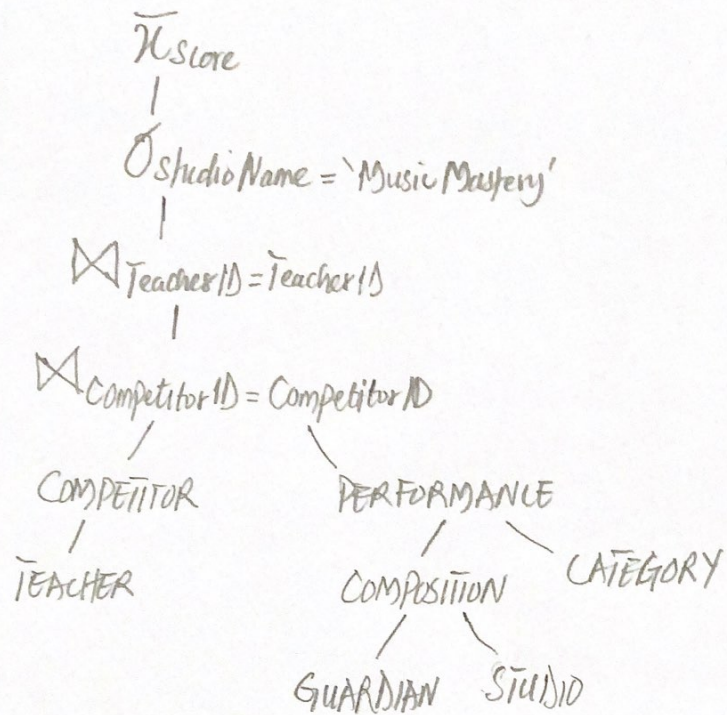 πScore
σStudioName = 'Music Mastery'
⋈TeacherID = TeacherID
⋈CompetitorID = CompetitorID
COMPETITOR PERFORMANCE
TEACHER COMPOSITION CATEGORY
GUARDIAN STUDIO